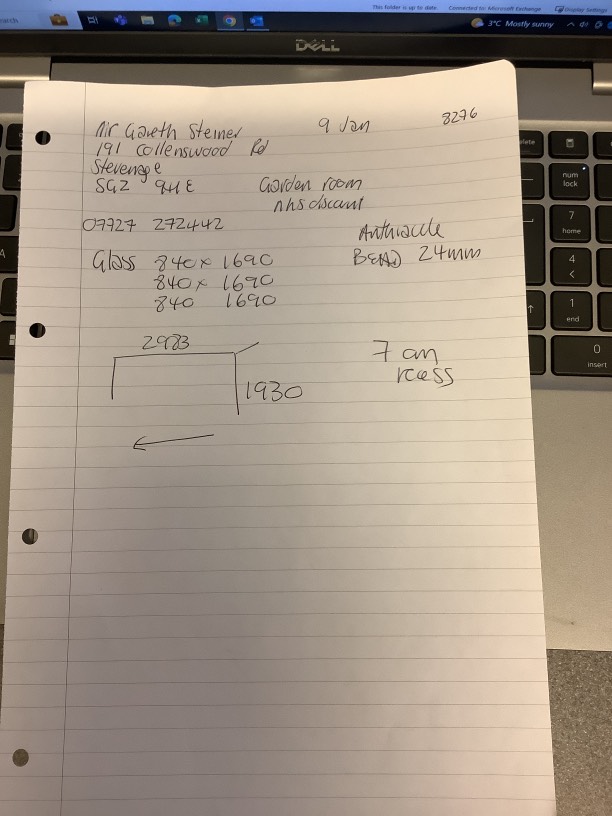 This folder is up to date. Connected to: Microsoft Exchange Display Settings
3°C Mostly sunny
DELL
Mr Gareth Steiner 9 Jan 8276
191 Collenswood Rd
Stevenage
SG2 9HE Garden room
nhs discount
07727 272442 Anthracite
Glass 840 x 1690 BEAD 24mm
840 x 1690
840 1690
2983 7 cm
rcess
1930
num
lock
7
home
4
<
1
end
0
insert